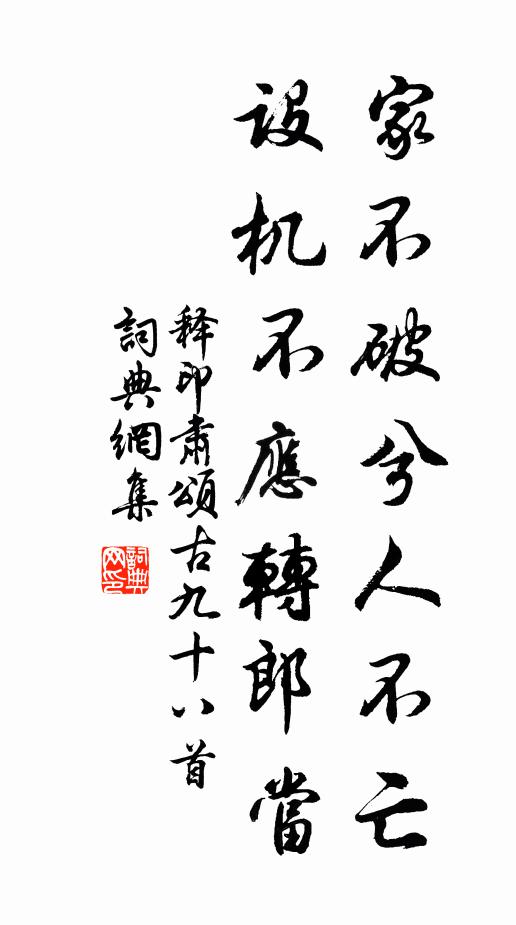 家不破兮人不亡
設机不應轉郎當
释印肅頌古九十八首
詞典網集
詞典网印